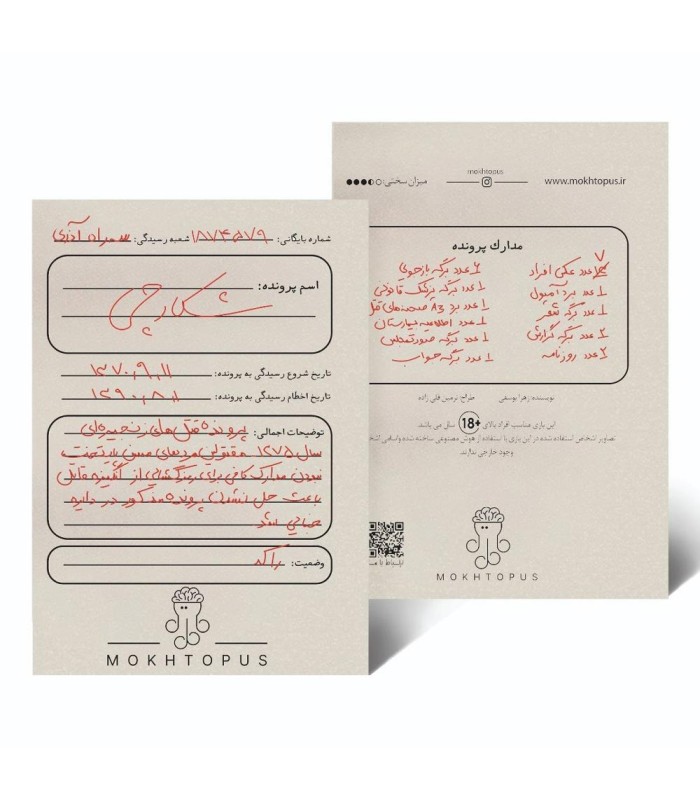 شماره بایگانی: ۱۸۷۴۵۷۹ شعبه رسیدگی:
اسم پرونده:
شکارچی
تاریخ شروع رسیدگی به پرونده: ۱۳۷۰,۹,۱۱
تاریخ اختام رسیدگی به پرونده: ۱۳۹۰,۸,۱۱
توضیحات اجمالی: پرونده قتل‌های زنجیره‌ای
سال ۱۳۷۵ مقتولین مردهای مسن پایتخت
نبودن مدارک کافی برای انگیزه قاتل
باعث حل نشدن پرونده مذکور در دایره
جنایی شد
وضعیت: راکد
MOKHTOPUS
میزان سختی:
mokhtopus
www.mokhtopus.ir
مدارك پرونده
۷ عدد عکس افراد
۱ عدد برد آمپول
۱ عدد برگه شعر
۲ عدد برگه گزارش
۲ عدد روزنامه
۲ عدد برگه بازجویی
۱ عدد برگه پزشک قانونی
۱ عدد برد A3 صحنه‌های قتل
۱ عدد اطلاعیه بیمارستان
۱ عدد برگه صورتمجلس
۱ عدد برگه جواب
نویسنده: زهرا یوسفی طراح: نرمین قلی زاده
این بازی مناسب افراد بالای +18 سال می باشد
تصاویر اشخاص استفاده شده در این بازی با استفاده از هوش مصنوعی ساخته شده واسامی
وجود خارجی ندارند.
ارتباط با
MOKHTOPUS